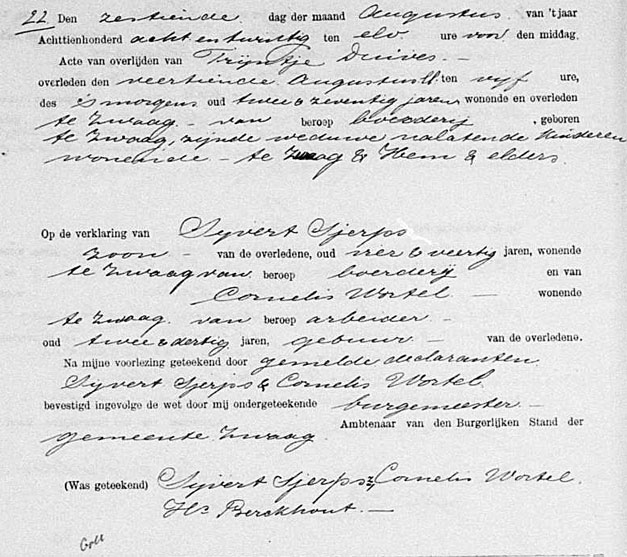 22 Den zestiende dag der maand Augustus van 't jaar
Achttienhonderd acht en twintig ten elv ure voor den middag.
Acte van overlijden van Trijntje Duives. —
overleden den veertiende Augustus ll. ten vyf ure,
des 's morgens oud twee & zeventig jaren wonende en overleden
te Zwaag. - van beroep boerderij , geboren
te Zwaag, zijnde weduwe nalatende Kinderen
wonende - te Zwaag & Hem & elders.
Op de verklaring van Syvert Sjerps
zoon - van de overledene, oud vier & veertig jaren, wonende
te Zwaag van beroep boerderij en van
Cornelis Wortel — wonende
te Zwaag. van beroep arbeider —
oud twee & dertig jaren, gebuur — van de overledene.
Na mijne voorlezing geteekend door gemelde declaranten
Syvert Sjerps & Cornelis Wortel.
bevestigd ingevolge de wet door mij ondergeteekende burgemeester —
Ambtenaar van den Burgerlijken Stand der
gemeente Zwaag.
(Was geteekend) Syvert Sjerpsz, Cornelis Wortel.
Hs Berckhout. —